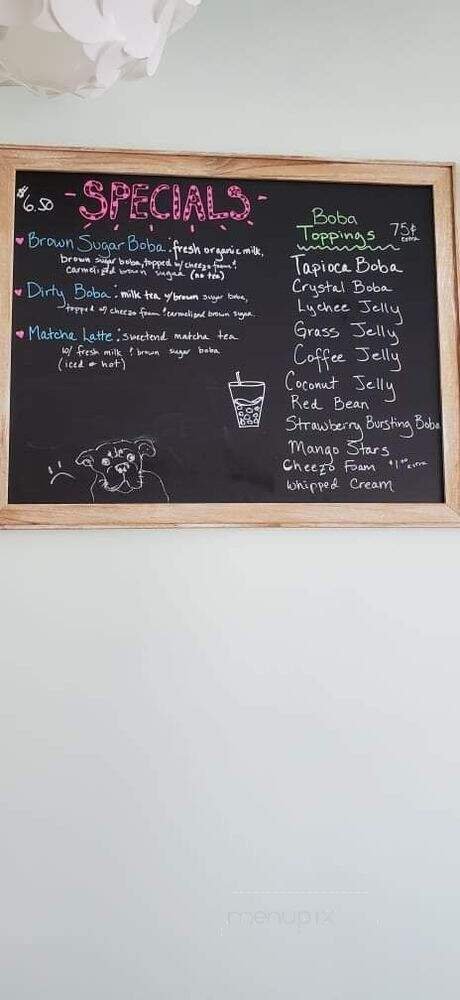 $6.50
- SPECIALS -
Brown Sugar Boba: fresh organic milk,
brown sugar boba, topped w/ cheezo foam &
carmelized brown sugar (no tea)
Dirty Boba: milk tea w/brown sugar boba,
topped w/ cheezo foam & carmelized brown sugar.
Matcha Latte: sweetend matcha tea
w/ fresh milk & brown sugar boba
(iced or hot)
Boba
Toppings 75¢ extra
Tapioca Boba
Crystal Boba
Lychee Jelly
Grass Jelly
Coffee Jelly
Coconut Jelly
Red Bean
Strawberry Bursting Boba
Mango Stars
Cheezo Foam $1.00 extra
Whipped Cream
menupix